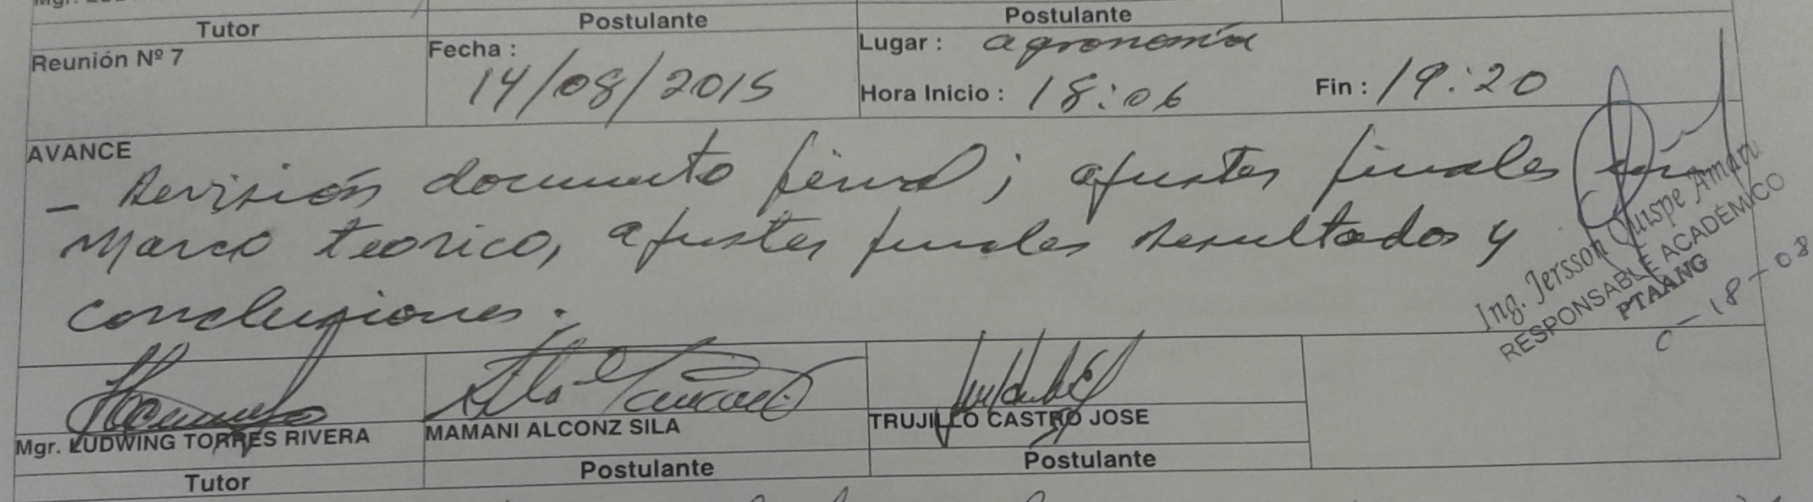 Tutor Postulante Postulante
Reunión Nº 7 Fecha : 14/08/2015 Lugar : agronomía
Hora Inicio : 18:06 Fin : 19:20
AVANCE
- Revisión documento final; ajustes finales en
Marco teorico, ajustes finales resultados y
conclusiones.
Ing. Jersson Quispe Amaru
RESPONSABLE ACADÉMICO
PTAANG
18-08
Mgr. LUDWING TORRES RIVERA MAMANI ALCONZ SILA TRUJILLO CASTRO JOSE
Tutor Postulante Postulante